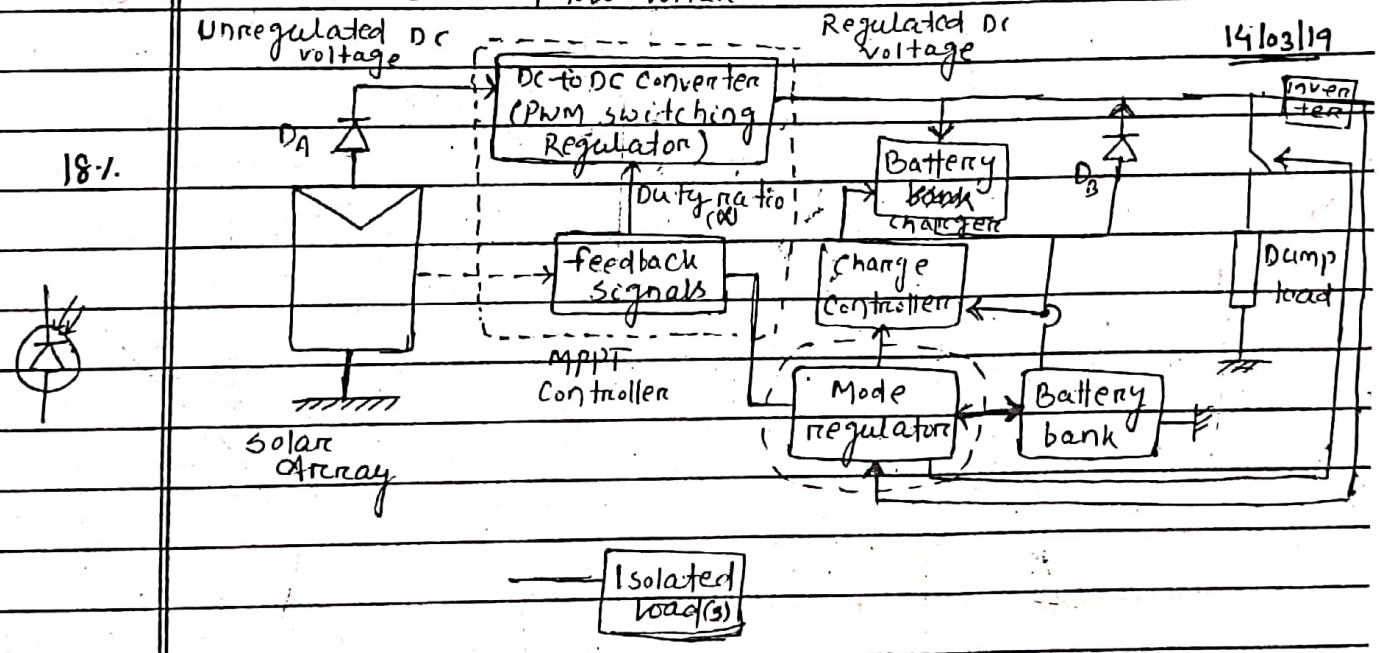 Unregulated Dc
voltage
Regulated Dc
voltage
14/03/19
Dc to DC converter
(PWM switching
Regulator)
Inver
ter
DA
18%
Battery
bank
charger
DB
Duty ratio
(α)
feedback
signals
Charge
Controller
Dump
load
MPPT
Controller
Mode
regulator
Battery
bank
Solar
Array
Isolated
Load(s)